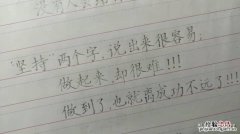 没有人
"坚持"两个字,说出来很容易;
做起来,却很难!!!
做到了,也就离成功不远了!!!